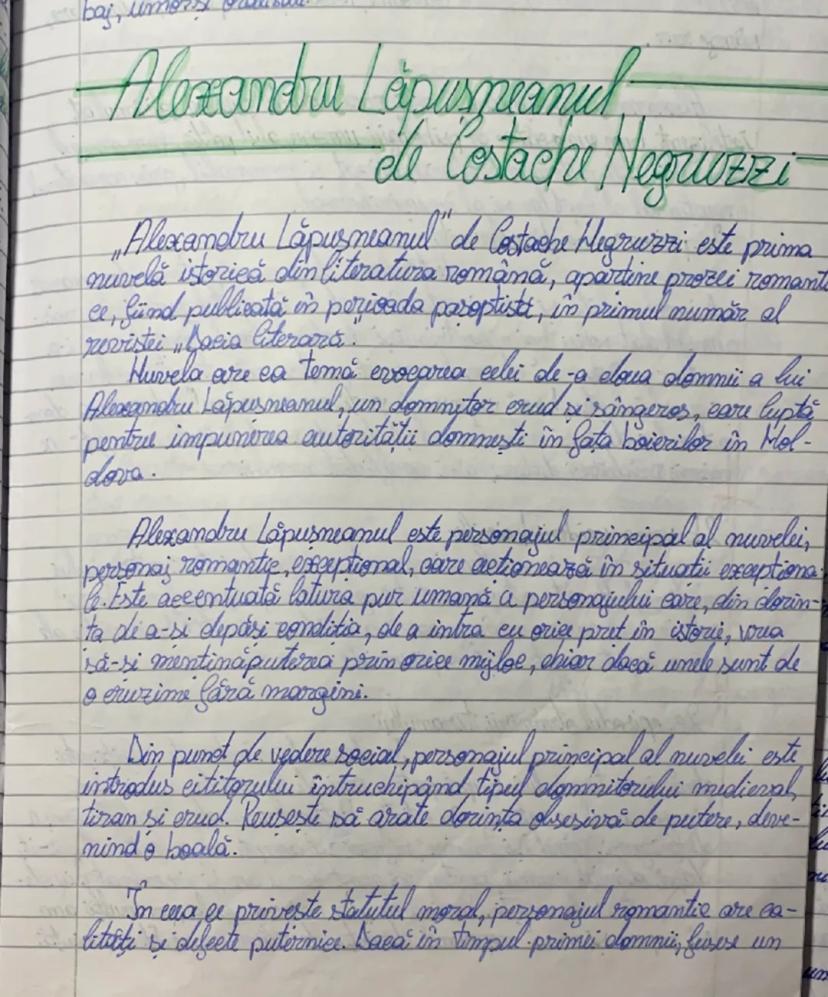 baj, umor și
Alexandru Lăpușneanul
de Costache Negruzzi
„Alexandru Lăpușneanul” de Costache Negruzzi este prima
nuvelă istorică din literatura română, aparține prozei romanti
ce, fiind publicată în perioada pașoptistă, în primul număr al
revistei „Dacia literară”.
Nuvela are ca temă evocarea celei de-a doua domnii a lui
Alexandru Lăpușneanul, un domnitor crud și sângeros, care luptă
pentru impunerea autorității domnești în fața boierilor în Mol-
dova.
Alexandru Lăpușneanul este personajul principal al nuvelei,
personaj romantic, excepțional, care acționează în situații excepționa
le. Este accentuată latura pur umană a personajului care, din dorin-
ța de a-și depăși condiția, de a intra cu orice preț în istorie, vrea
să-și mențină puterea prin orice mijloc, chiar dacă unele sunt de
o cruzime fără margini.
Din punct de vedere social, personajul principal al nuvelei este
introdus cititorului întruchipând tipul domnitorului medieval,
tiran și crud. Reușește să arate dorința obsesivă de putere, deve-
nind o boală.
În ceea ce privește statutul moral, personajul romantic are ca-
lități și defecte puternice. Dacă în timpul primei domnii, fusese un